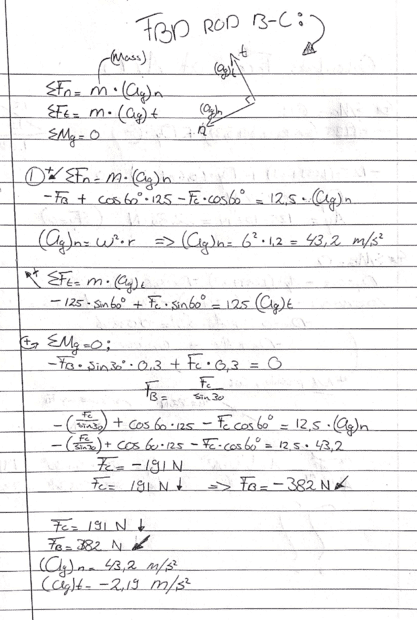 FBD ROD B-C:
(Mass)
ΣFn = m·(ag)n
ΣFt = m·(ag)t
ΣMg = 0
(ag)t
t
(ag)n
n
① + ΣFn = m·(ag)n
-FB + cos60°·125 - Fc·cos60° = 12,5·(ag)n
(ag)n = ω²·r => (ag)n = 6²·1,2 = 43,2 m/s²
+ ΣFt = m·(ag)t
-125·sin60° + Fc·sin60° = 125(ag)t
+ ΣMg = 0;
-FB·sin30°·0,3 + Fc·0,3 = 0
FB = Fc/sin30
-(Fc/sin30) + cos60·125 - Fc cos60° = 12,5·(ag)n
-(Fc/sin30) + cos60·125 - Fc·cos60° = 12,5·43,2
Fc = -191 N
Fc = 191 N ↓ => FB = -382 N ↙
Fc = 191 N ↓
FB = 382 N ↙
(ag)n = 43,2 m/s²
(ag)t = -2,19 m/s²